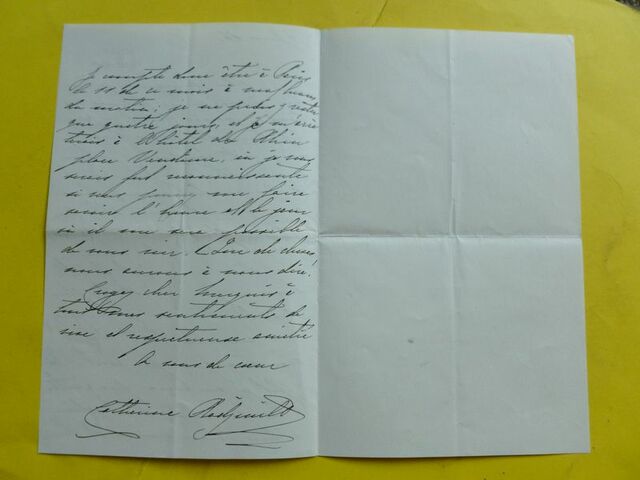 Je compte donc être à Paris
le 11 de ce mois à neuf heures
du matin; je ne puis y rester
que quatre jours, et je m'arrê
terai à l'hôtel du Rhin
place Vendôme, où je vous
serais fort reconnaissante
si vous pouviez me faire
savoir l'heure et le jour
où il me sera possible
de vous voir. Que de choses
nous aurons à nous dire!
Croyez cher Marquis à
tous mes sentiments de
vive et respectueuse amitié
A vous de cœur
Catherine